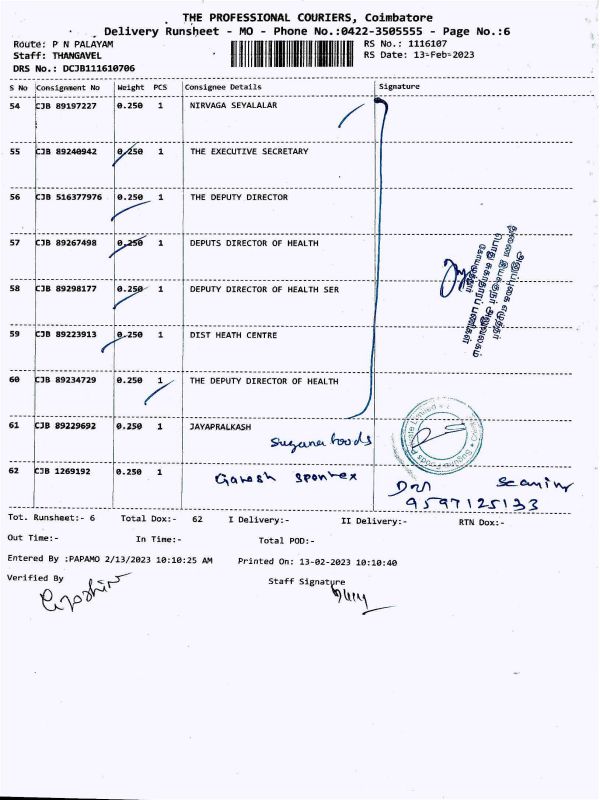 THE PROFESSIONAL COURIERS, Coimbatore
Delivery Runsheet - MO - Phone No.:0422-3505555 - Page No.:6
Route: P N PALAYAM RS No.: 1116107
Staff: THANGAVEL RS Date: 13-Feb-2023
DRS No.: DCJB111610706
S No Consignment No Weight PCS Consignee Details Signature
54 CJB 89197227 0.250 1 NIRVAGA SEYALALAR
55 CJB 89240942 0.250 1 THE EXECUTIVE SECRETARY
56 CJB 516377976 0.250 1 THE DEPUTY DIRECTOR
57 CJB 89267498 0.250 1 DEPUTS DIRECTOR OF HEALTH
58 CJB 89298177 0.250 1 DEPUTY DIRECTOR OF HEALTH SER
59 CJB 89223913 0.250 1 DIST HEATH CENTRE
60 CJB 89234729 0.250 1 THE DEPUTY DIRECTOR OF HEALTH
அலுவலக எழுத்தர்
துணை இயக்குநர் அலுவலகம்
பொது சுகாதாரப் பணிகள்
கோயமுத்தூர்
61 CJB 89229692 0.250 1 JAYAPRALKASH
Suguna foods
Suguna Foods Private Limited
62 CJB 1269192 0.250 1 Ganesh
9597125133
Tot. Runsheet:- 6 Total Dox:- 62 I Delivery:- II Delivery:- RTN Dox:-
Out Time:- In Time:- Total POD:-
Entered By :PAPAMO 2/13/2023 10:10:25 AM Printed On: 13-02-2023 10:10:40
Verified By Staff Signature